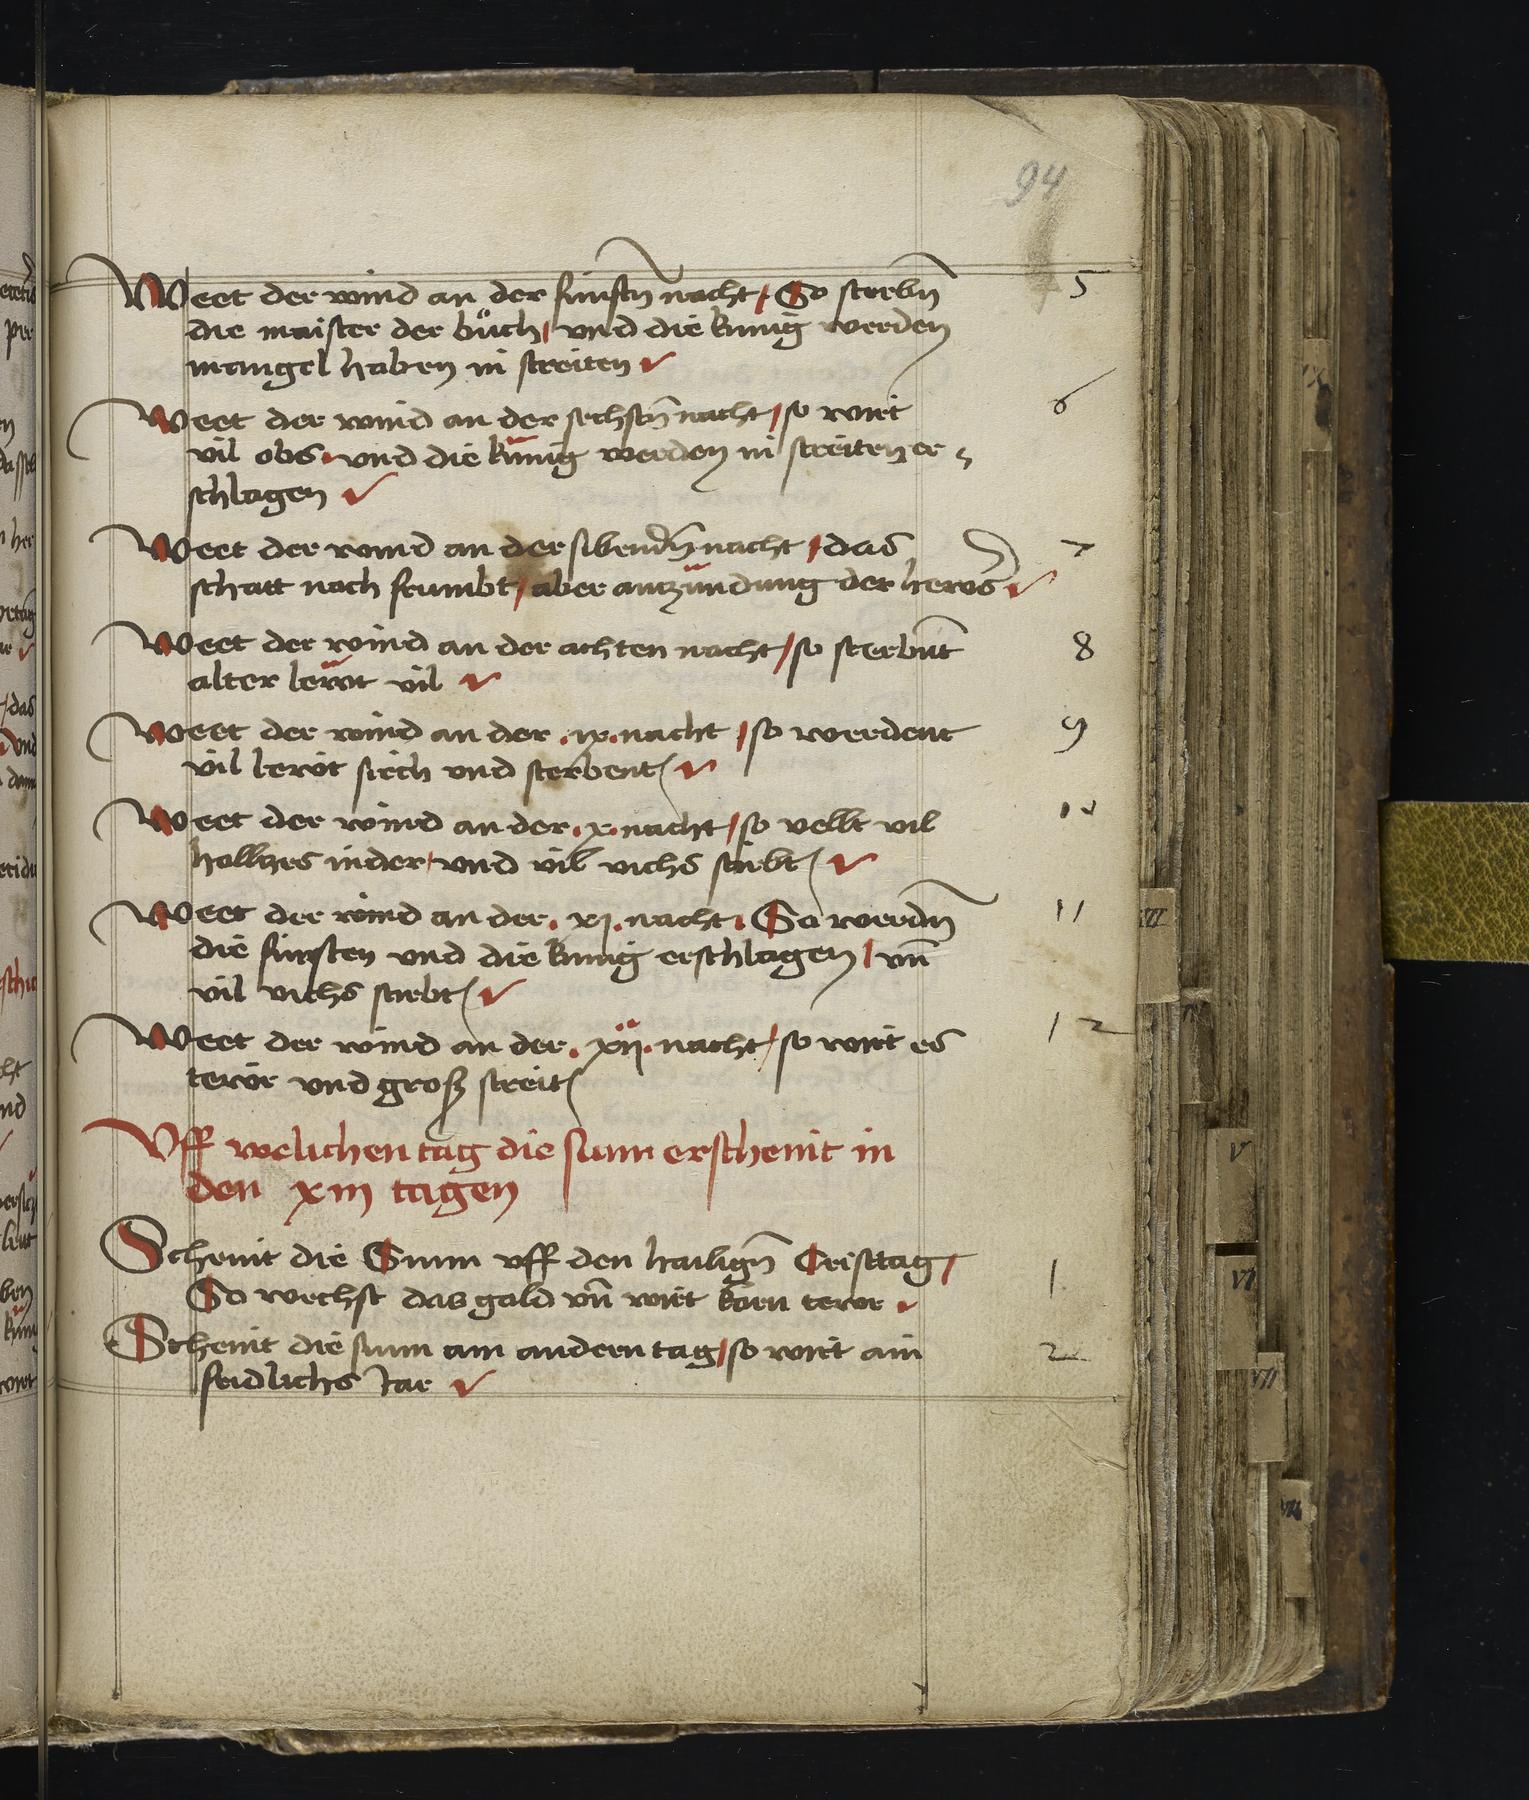 94
Weet der wind an der funftn̄ nacht / So sterbn̄ 5
die maister der buͦch / vnd die kunig werden
mangel haben in streiten
Weet der wind an der sechstn̄ nacht / so wirt 6
vil obs · vnd die künig werden in streiten er
schlagen
Weet der wind an der sibendn̄ nacht / das 7
schatt nach frumbt / aber antzündung der herns
Weet der wind an der achten nacht / so sterbnt 8
alter lewt vil
Weet der wind an der .ix. nacht / so werdent 9
vil lewt siech vnd sterbent
Weet der wind an der .x. nacht / so velbt vil 10
holltzes inder / vnd vil vichs stirbt
Weet der wind an der .xj. nacht . So werdn̄ 11
die fursten vnd die kunig erschlagen / vn̄
vil vichs stirbt
Weet der wind an der .xij. nacht / so wirt es 12
tewr vnd groß streit
Vff welichen tag die sunn erscheint in
den xiii tagen
Scheint die Sunn vff den hailign̄ Cristtag / 1
So wechst das gold vn̄ wirt korn tewr
Scheint die sunn am andern tag / so wirt ain 2
fridlichs Jar
III
V
VI
VII